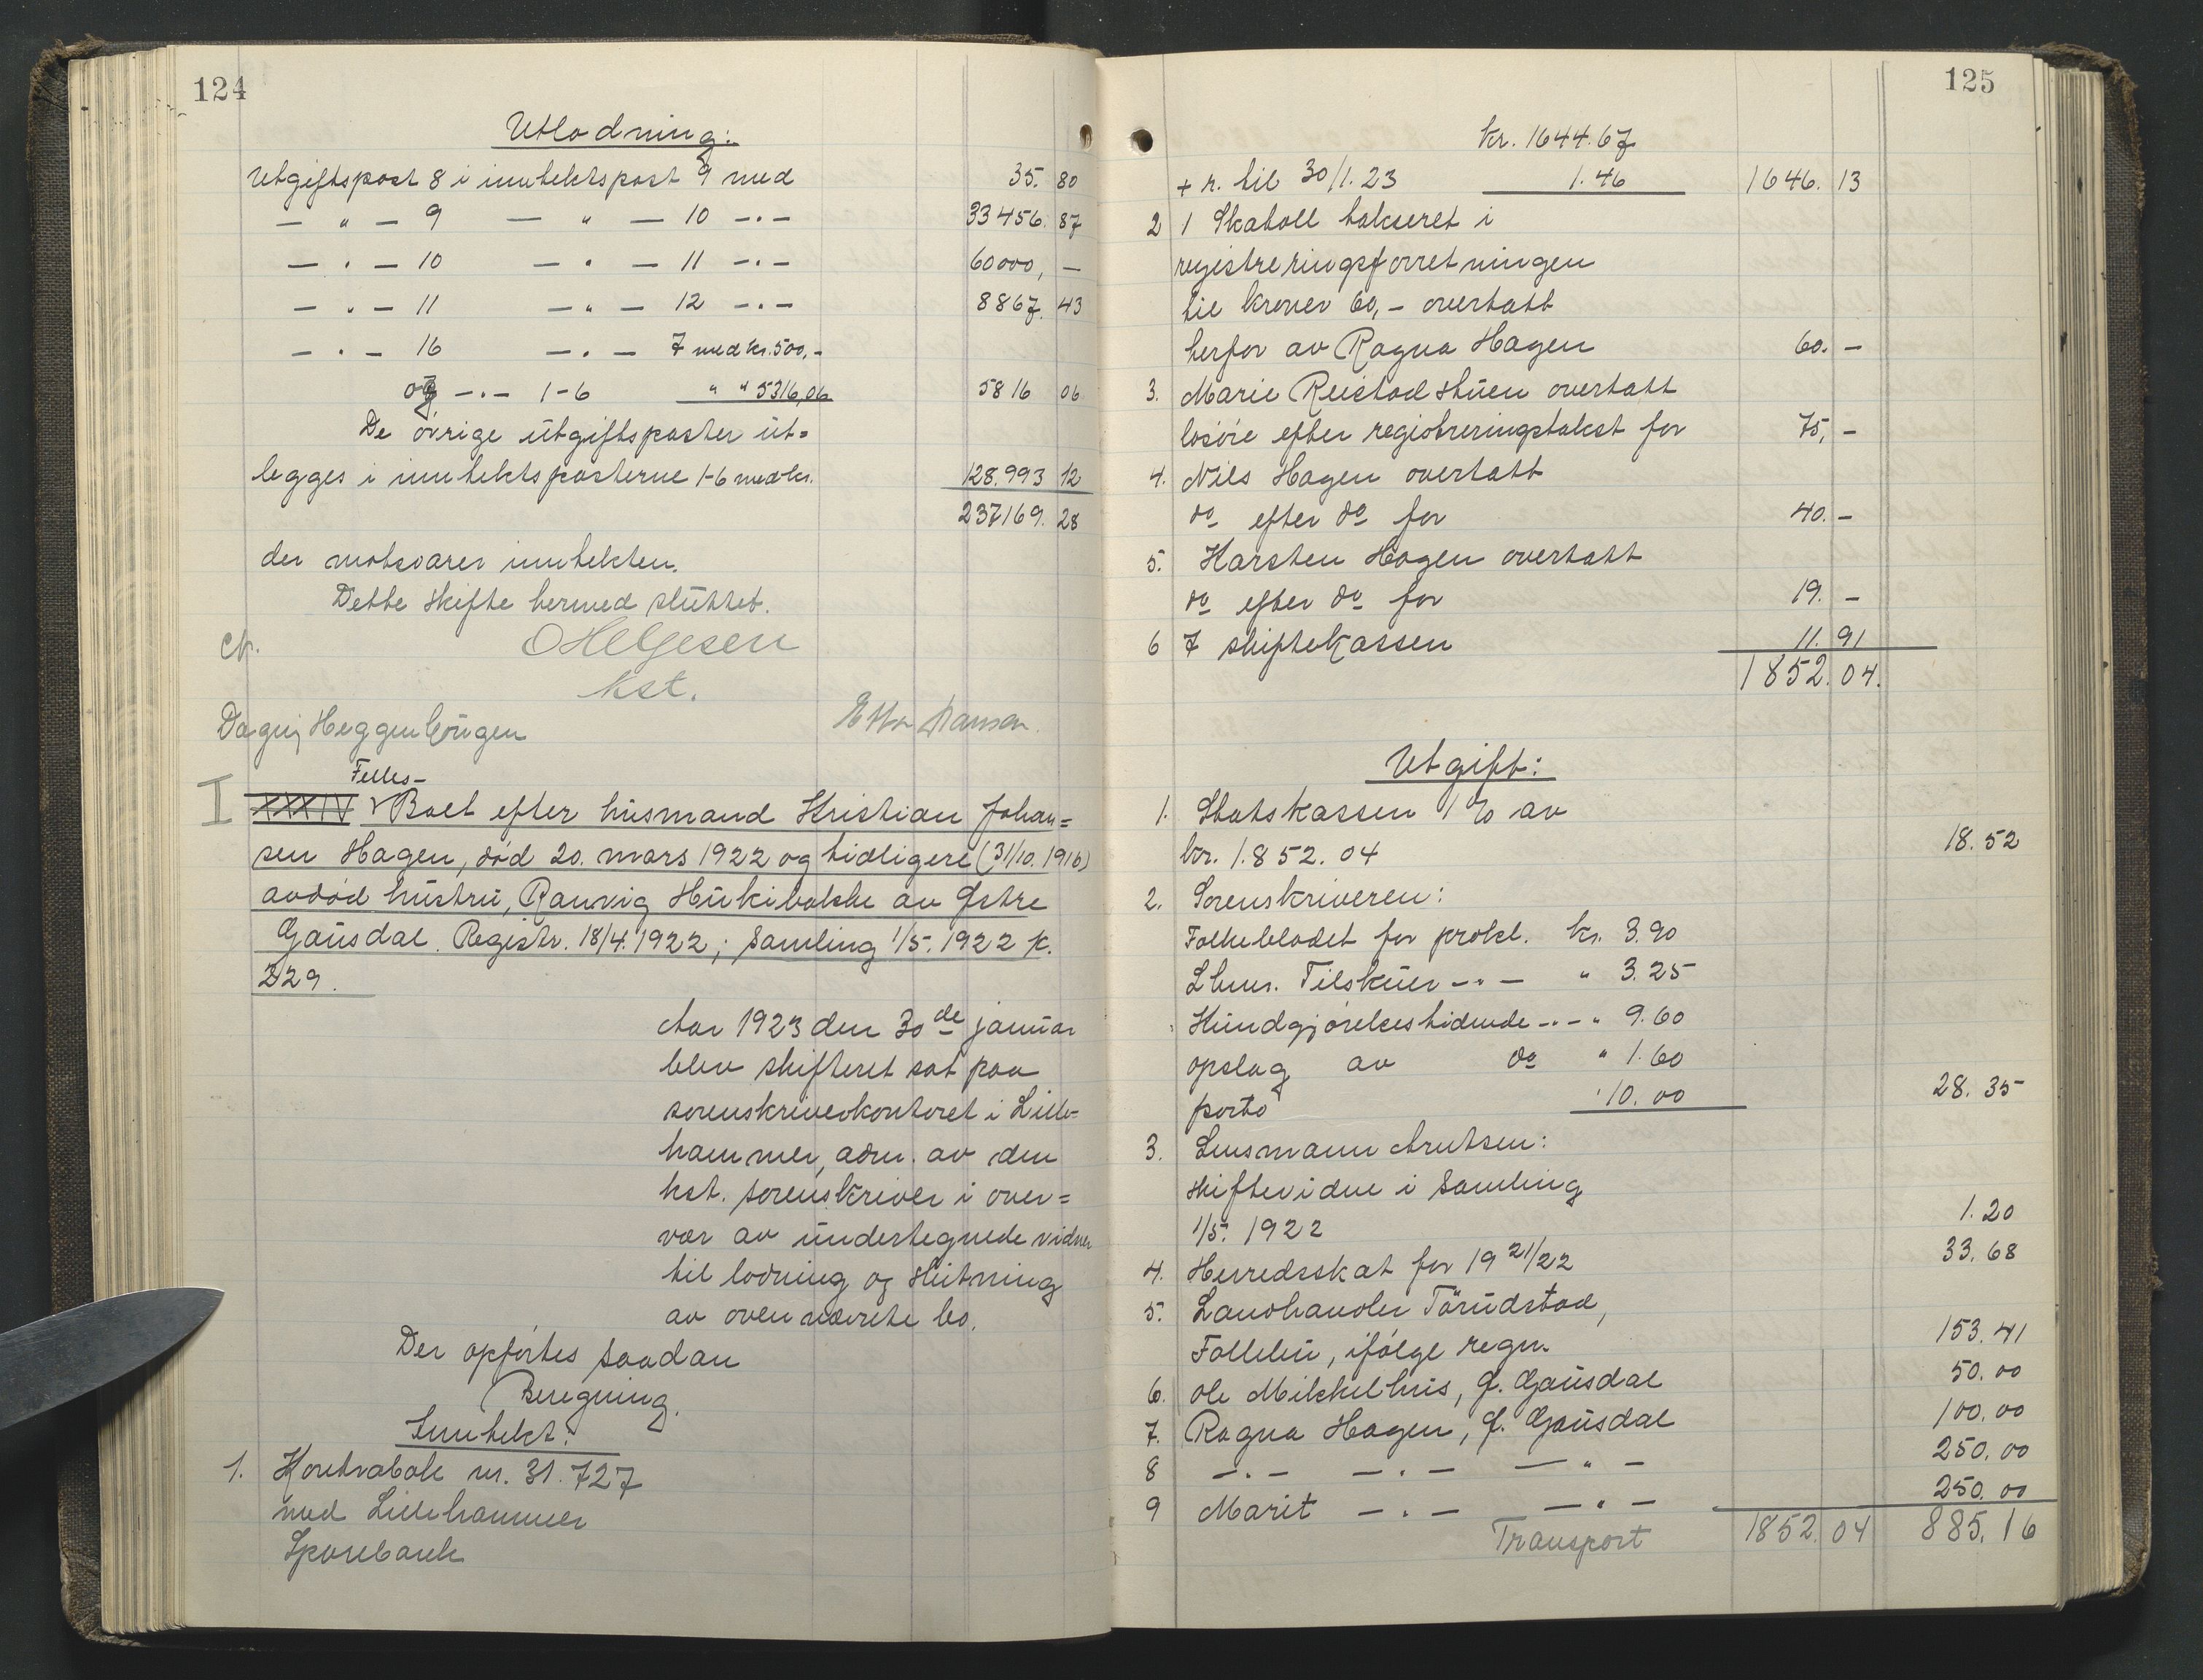 124
Utlodning:
Utgiftspost 8 i inntektspost 9 med 35. 80
— " — 9 — " — 10 —"— 33456. 87
— " — 10 — " — 11 —"— 60000, —
— " — 11 — " — 12 —"— 8867. 43
— " — 16 — " — 7 med kr. 500,-
og —"— 1-6 " " 5316,06 5816 06
De övrige utgiftsposter ut=
legges i inntektsposterne 1-6 med kr. 128.993 12
237169. 28
der motsvarer inntekten.
Dette skifte hermed sluttet.
OHelgesen
kst.
Dagny Heggenhougen
Felles-
I XXXIV Boet efter husmand Kristian Johan=
sen Hagen, död 20. mars 1922 og tidligere (31/10. 1916)
avdöd hustru, Ranvig av Östre
Gausdal. Registr. 18/4. 1922; Samling 1/5. 1922 p.
329.
Aar 1923 den 30de januar
blev skifteret sat paa
sorenskriverkontoret i Lille-
hammer, adm. av den
kst. sorenskriver i over=
vær av undertegnede vidner
til lodning og slutning
av ovennævnte bo.
Der opförtes saadan
Beregning.
Inntekt:
1. Kontrabok nr. 31.727
med Lillehammer
Sparebank
125
kr. 1644.67
+ r. til 30/1. 23 1.46 1646. 13
2 1 Skatoll takseret i
registreringsforretningen
til kroner 60,- overtatt
herfor av Ragna Hagen 60. —
3. Marie Reistadstuen overtatt
lösöre efter registreringstakst for 75, —
4. Nils Hagen overtatt
do efter do for 40. —
5. Karsten Hagen overtatt
do efter do for 19. —
6 7 skiftekassen 11. 91
1852. 04.
Utgift:
1. Statskassen 1% av
kr. 1.852.04 18.52
2. Sorenskriveren:
Folkebladet for prokl. kr. 3.90
Lhmr. Tilskuer —"— " 3.25
Kundgjörelsestidende —"— " 9.60
opslag av do " 1.60
porto " 10.00 28.35
3. Lensmann Arntsen:
skiftevidne i samling
1/5. 1922 1.20
4. Herredsskat for 1921/22 33.68
5. Landhandler Törudstad,
Follebu, ifölge regn. 153.41
6. Ole Mikkelhus, Ö. Gausdal 50.00
7. Ragna Hagen, Ö. Gausdal 100.00
8 —"— —"— —"— 250.00
9 Marit —"— —"— 250.00
Transport 1852.04 885.16